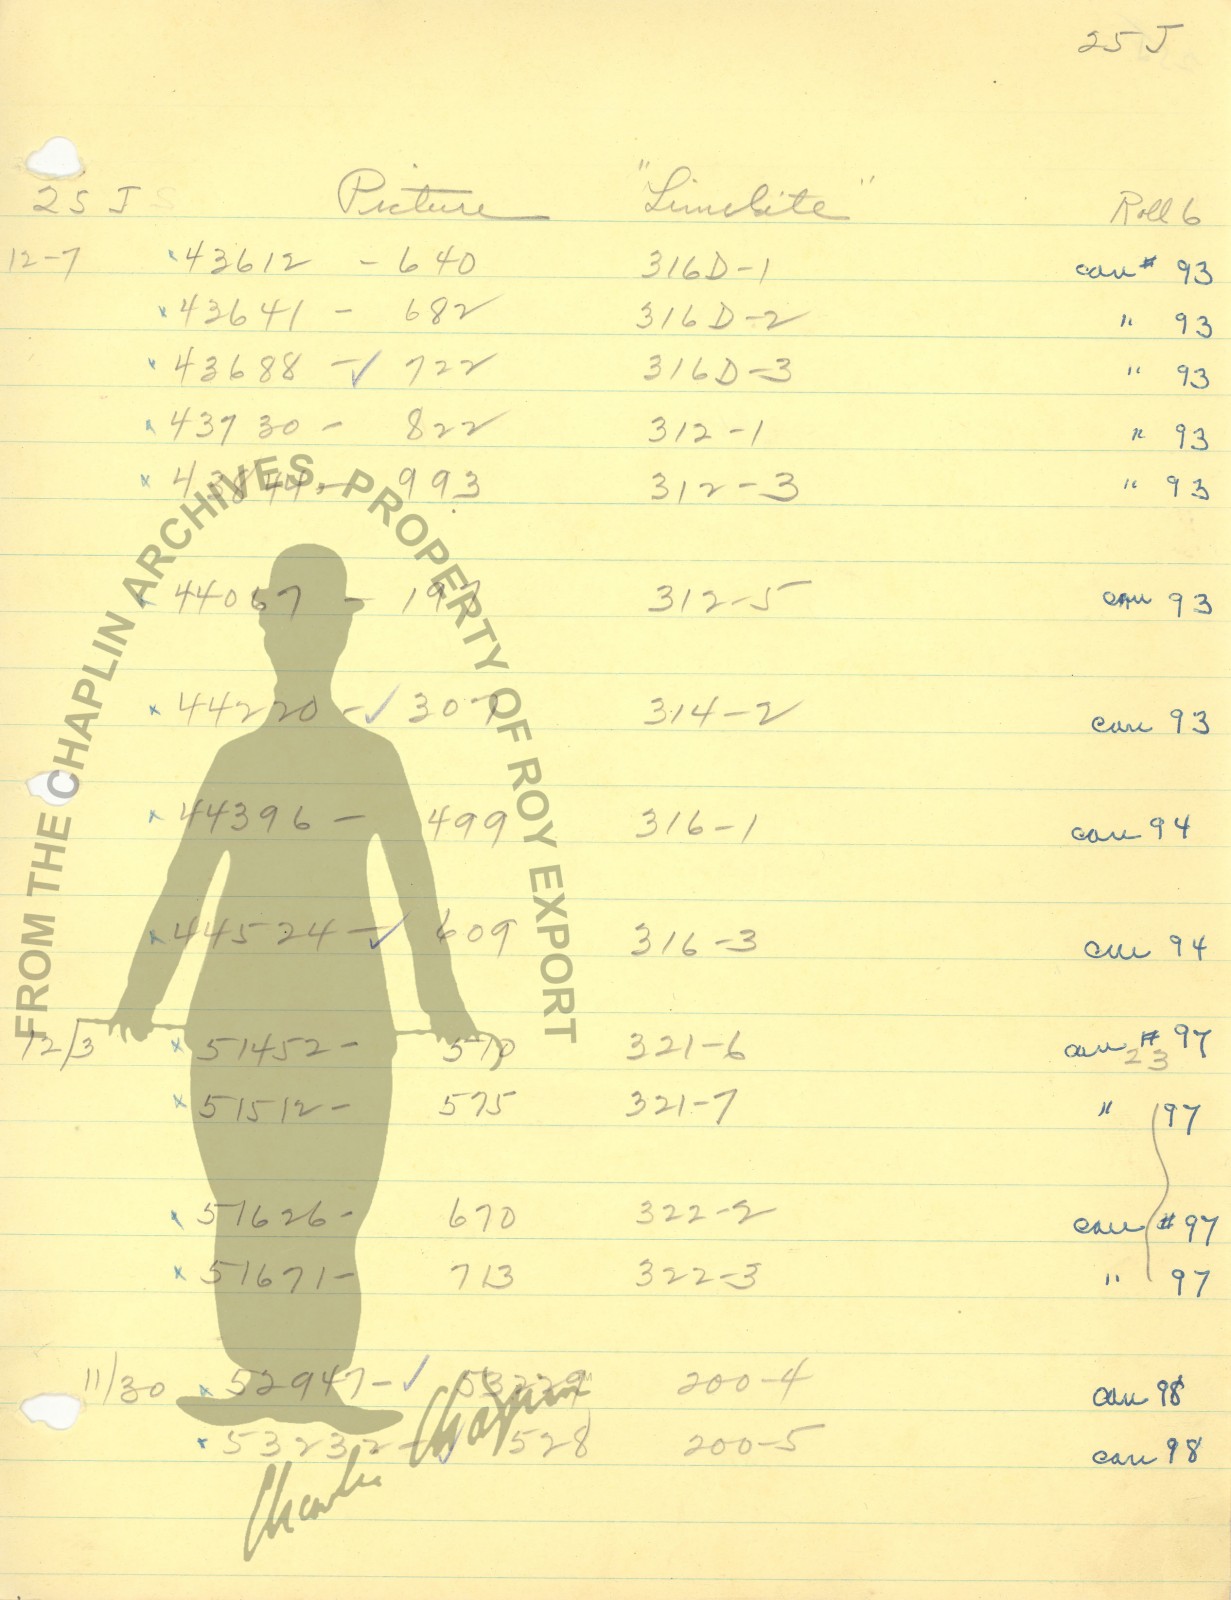 25 J
25 J Picture "Limelite" Roll 6
12-7 x 43612 - 640 316D-1 can # 93
x 43641 - 682 316D-2 " 93
x 43688 - ✓ 722 316D-3 " 93
x 43730 - 822 312-1 " 93
x 43844 - 993 312-3 " 93
x 44067 - 197 312-5 can 93
x 44220 - ✓ 307 314-2 can 93
x 44396 - 499 316-1 can 94
x 44524 - ✓ 609 316-3 can 94
12/3 x 51452 - 510 321-6 can # 97
23
x 51512 - 575 321-7 " 97
x 51626 - 670 322-2 can # 97
x 51671 - 713 322-3 " 97
11/30 x 52947 - ✓ 53229 200-4 can 98
x 53232 - ✓ 528 200-5 can 98
FROM THE CHAPLIN ARCHIVES, PROPERTY OF ROY EXPORT
Charlie Chaplin